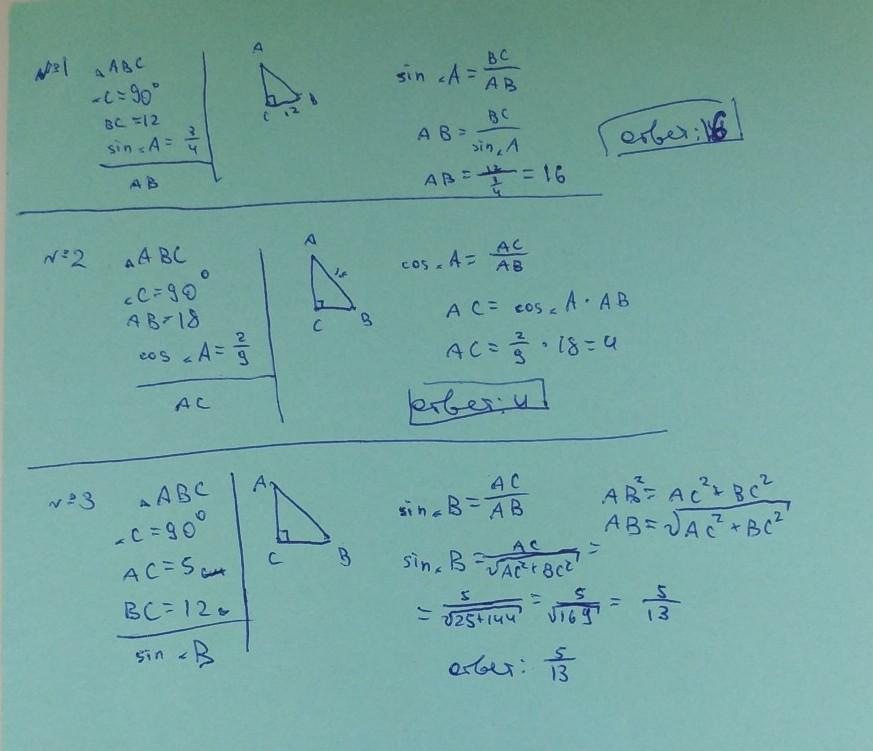 №1
△ABC
∠C=90°
BC=12
sin∠A=3/4
AB
A
C 12 B
sin∠A=BC/AB
AB=BC/sin∠A
AB=12/(3/4)=16
ответ: 16
№2
△ABC
∠C=90°
AB=18
cos∠A=2/9
AC
A
18
C B
cos∠A=AC/AB
AC=cos∠A·AB
AC=2/9·18=4
ответ: 4
№3
△ABC
∠C=90°
AC=5см
BC=12
sin∠B
A
C B
sin∠B=AC/AB
sin∠B=AC/√(AC²+BC²)=
=5/√(25+144)=5/√169=5/13
ответ: 5/13
AB²=AC²+BC²
AB=√(AC²+BC²)